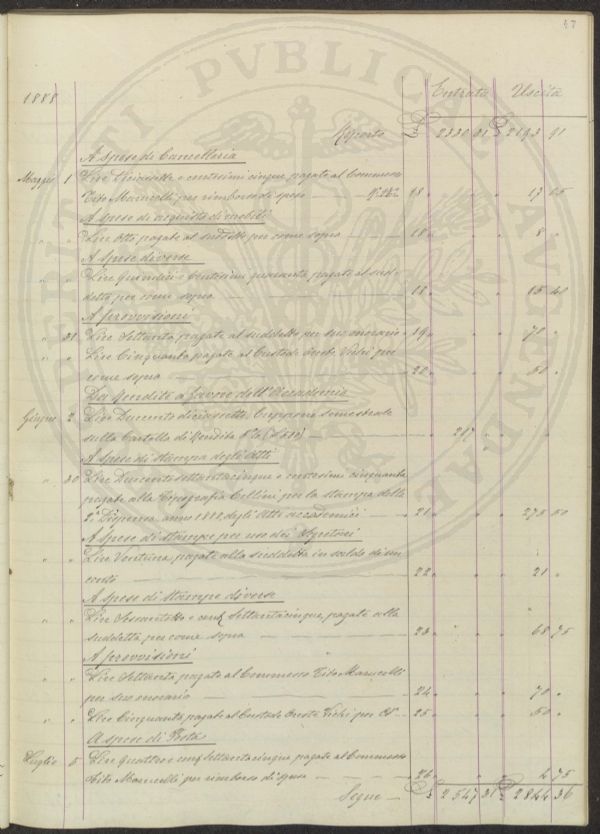 47
1888 Entrata Uscita
Riporto £ 2330 31 £ 2193 91
A spese di Cancelleria
Maggio 1 Lire Diciasette e centesimi cinque pagate al Commesso
Tito Marucelli per rimborso di spese 18 " " " 17 05
A spese di acquisto di mobili
" " Lire Otto pagate al suddetto per come sopra 18 " " " 8 "
A spese diverse
" " Lire Quindici e Centesimi quaranta pagate al sud-
detto per come sopra 18 " " " 15 40
A provvisioni
" 31 Lire Settanta pagate al suddetto per suo onorario 19 " " " 70 "
" " Lire Cinquanta pagate al Custode Oreste Vichi per
come sopra 20 " " " 50 "
Da Rendite a favore dell'Accademia
Giugno 2 Lire Duecento diciassette, Riscossione semestrale
sulla Cartella di Rendita 5%
217 " " "
A spese di stampa degli Atti
" 30 Lire Duecento settantacinque e centesimi cinquanta
pagate alla Tipografia Cellini per la stampa della
2ª Dispensa anno 1888 degli Atti accademici 21 " " " 275 50
A spese di stampe per uso dei
" " Lire Ventuna pagate alla suddetta in saldo di un
conto 22 " " " 21 "
A spese di stampe diverse
" " Lire Sessantotto e cent. Settantacinque, pagate alla
suddetta per come sopra 23 " " " 68 75
A provvisioni
" " Lire Settanta pagate al Commesso Tito Marucelli
per suo onorario 24 " " " 70 "
" " Lire Cinquanta pagate al Custode Oreste Vichi per 25 " " " 50 "
A spese di Posta
Luglio 5 Lire Quattro e cent. settantacinque pagate al Commesso
Tito Marucelli per rimborso di spese 26 " " " 4 75
Segue £ 2547 31 £ 2844 36
PVBLICAE